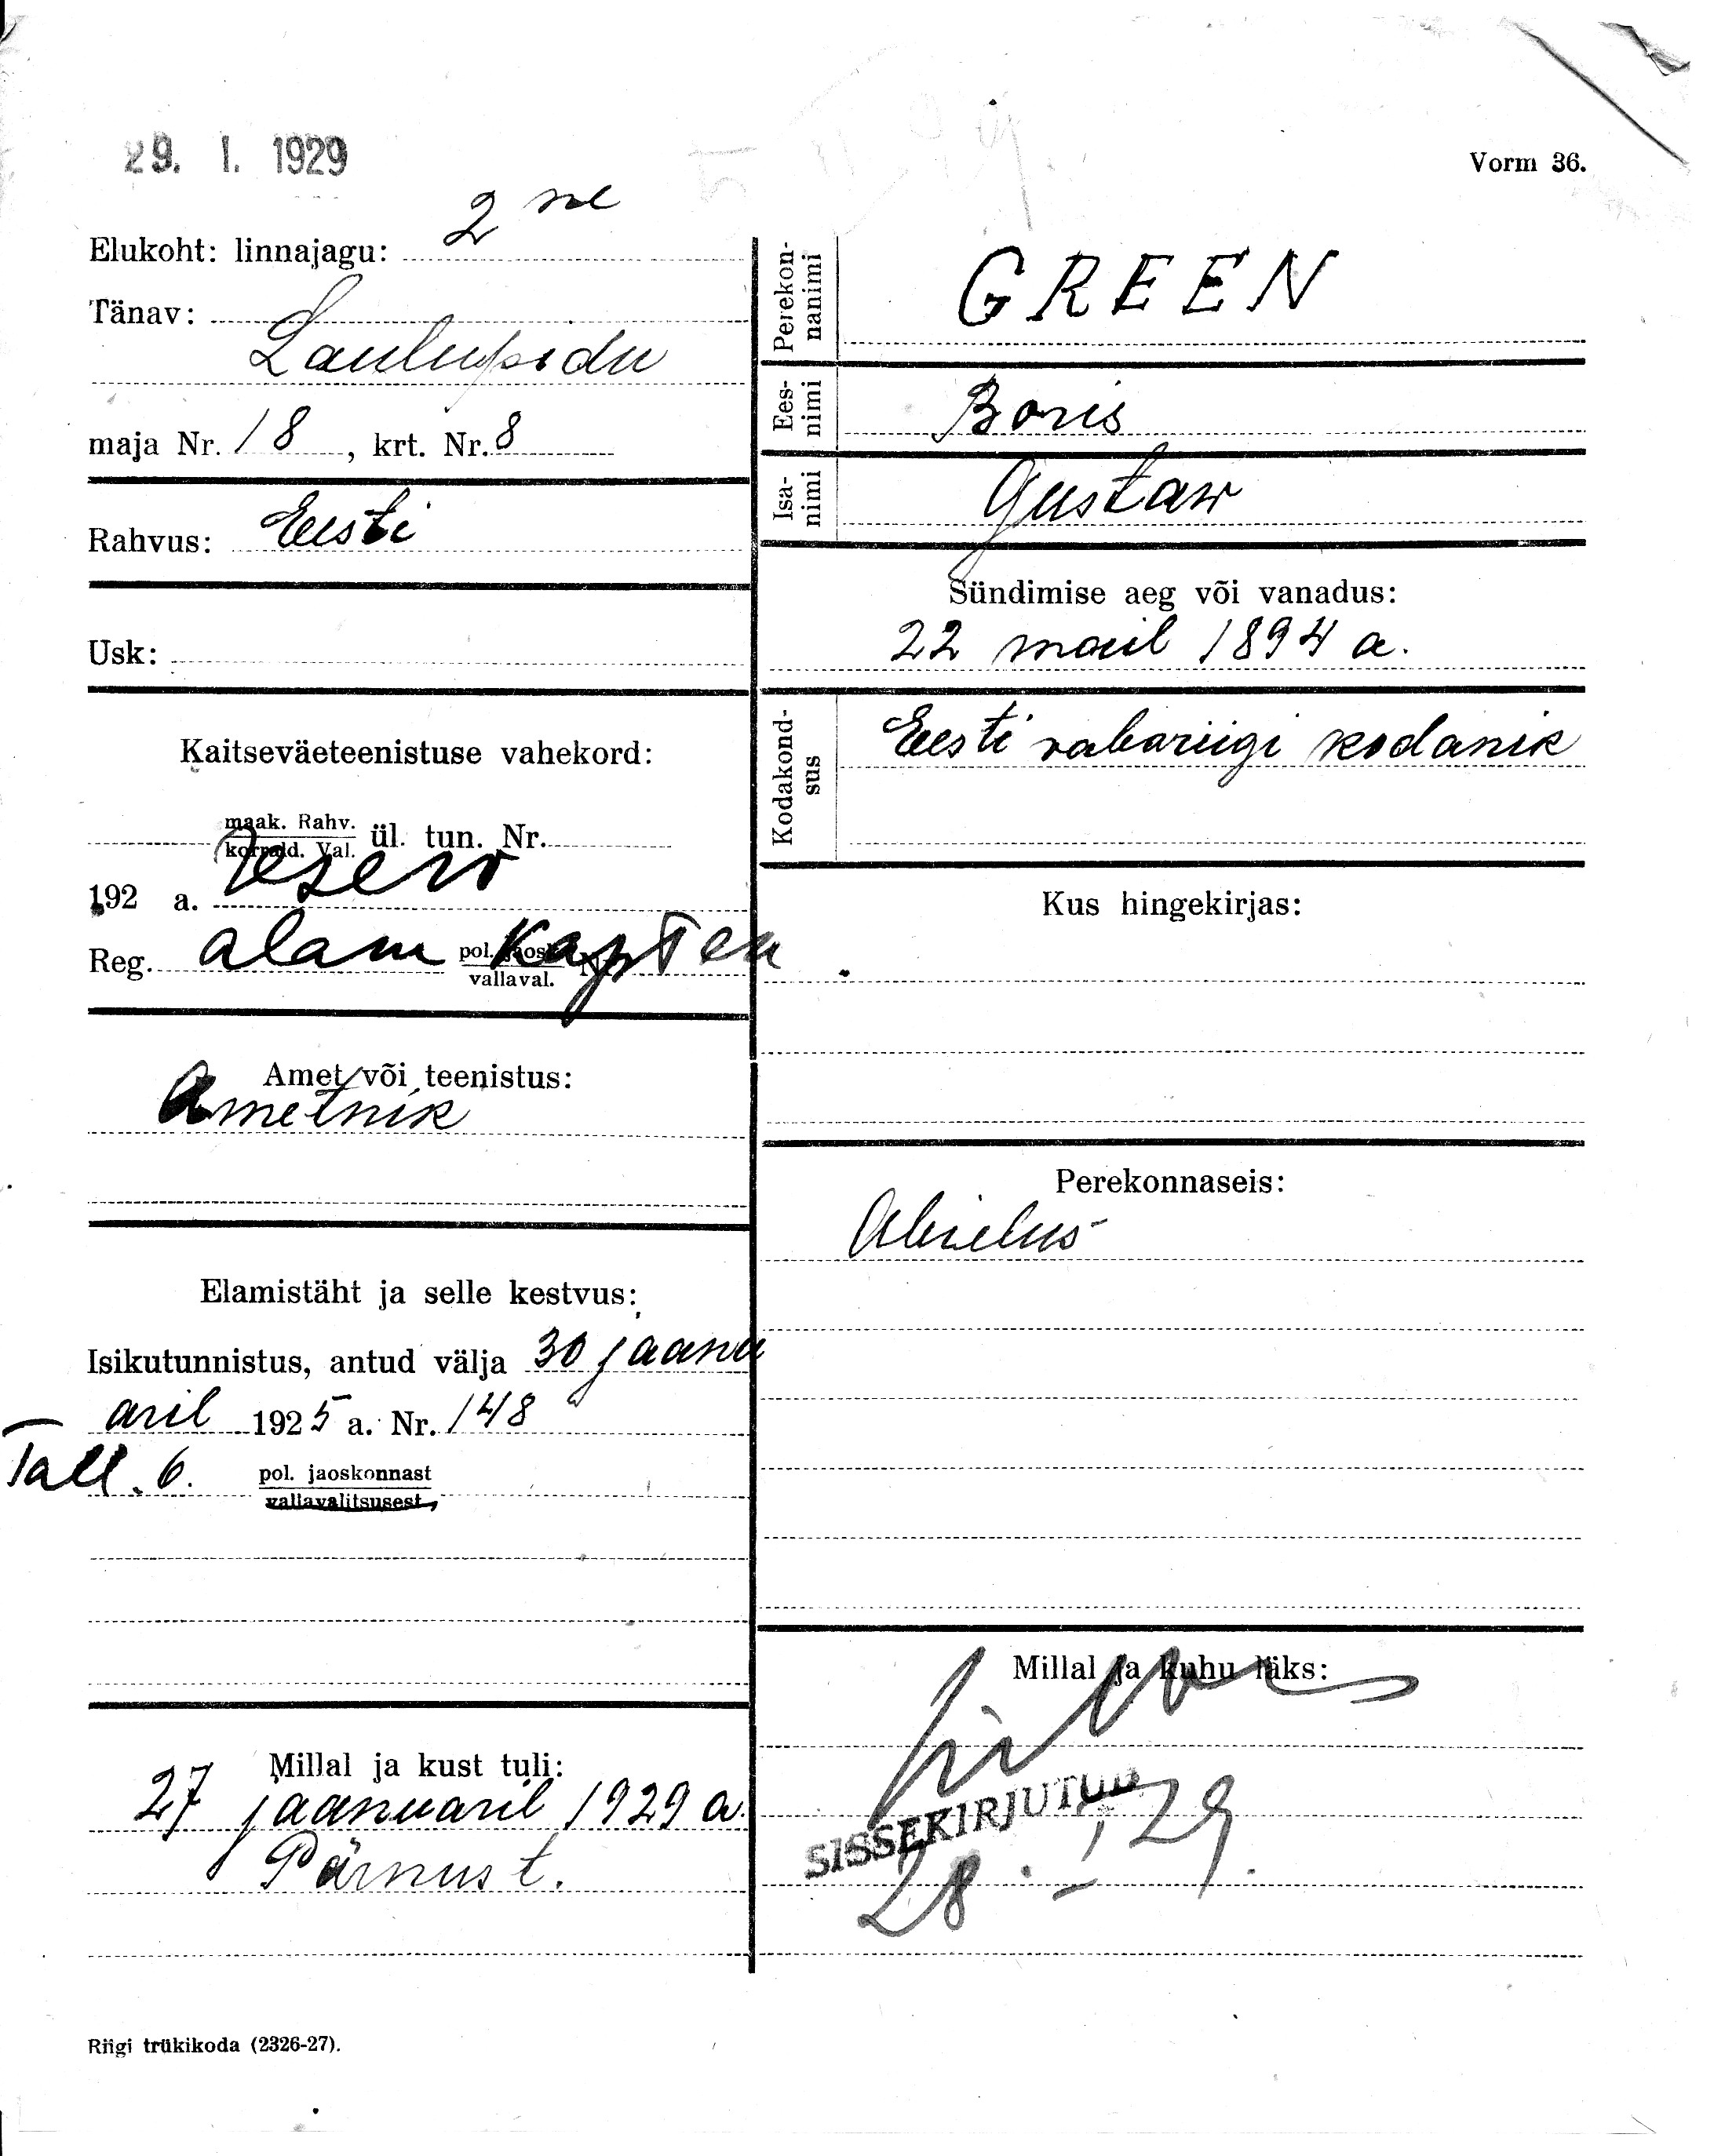 29. I. 1929
Vorm 36.
Elukoht: linnajagu: 2 ne
Tänav:
Laulupidu
maja Nr. 18, krt. Nr. 8
Rahvus: Eesti
Usk:
Kaitseväeteenistuse vahekord:
maak. Rahv.
korrald. Val. ül. tun. Nr.
192 a. reserv
Reg. alam kapten pol. jaosk. Nr.
vallaval.
Amet või teenistus:
Ametnik
Elamistäht ja selle kestvus:
Isikutunnistus, antud välja 30 jaanu
aril 1925 a. Nr. 148
Tall. 6. pol. jaoskonnast
vallavalitsusest
Millal ja kust tuli:
27 jaanuaril 1929 a.
Pärnust.
Perekon-
nanimi
GREEN
Ees-
nimi
Boris
Isa-
nimi
Gustaw
Sündimise aeg või vanadus:
22 mail 1894 a.
Kodakond-
sus
Eesti vabariigi kodanik
Kus hingekirjas:
Perekonnaseis:
Abielus
Millal ja kuhu läks:
SISSEKIRJUTUD
28. I 29.
Riigi trükikoda (2326-27).